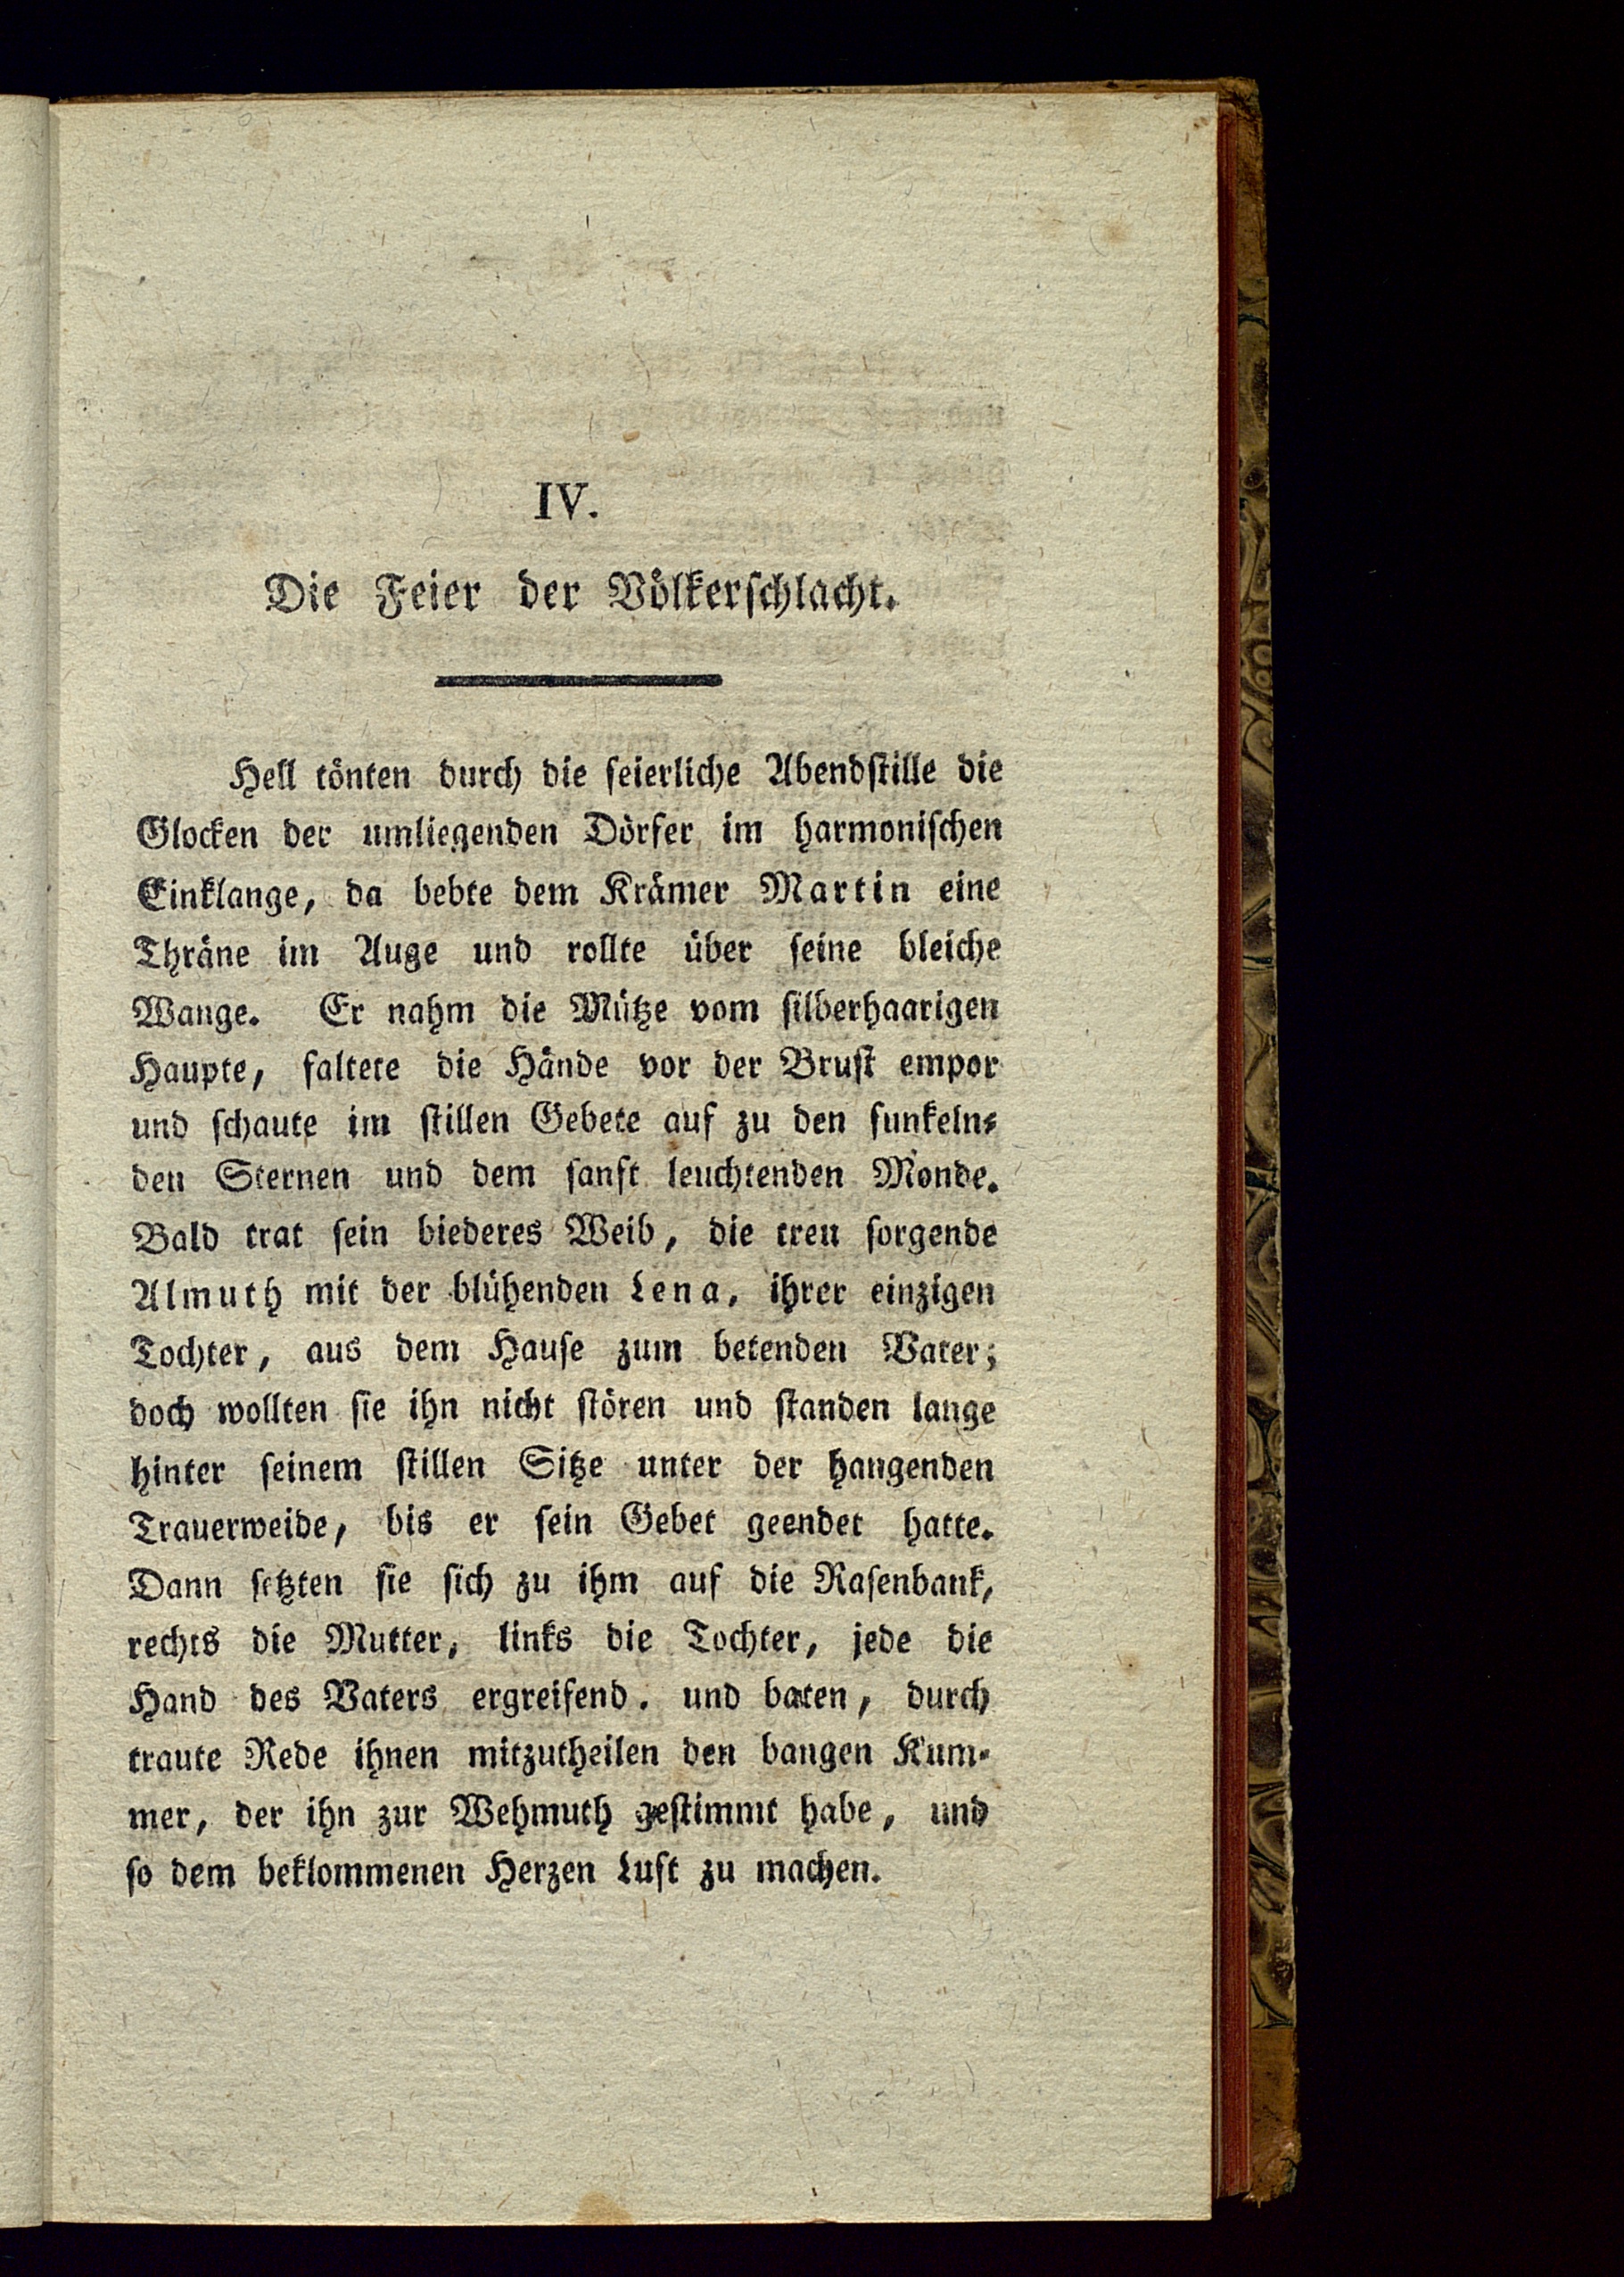 IV.
Die Feier der Völkerschlacht.
Hell tönten durch die feierliche Abendstille die
Glocken der umliegenden Dörfer im harmonischen
Einklange, da bebte dem Krämer Martin eine
Thräne im Auge und rollte über seine bleiche
Wange. Er nahm die Mütze vom silberhaarigen
Haupte, faltete die Hände vor der Brust empor
und schaute im stillen Gebete auf zu den funkeln-
den Sternen und dem sanft leuchtenden Monde.
Bald trat sein biederes Weib, die treu sorgende
Almuth mit der blühenden Lena, ihrer einzigen
Tochter, aus dem Hause zum betenden Vater;
doch wollten sie ihn nicht stören und standen lange
hinter seinem stillen Sitze unter der hangenden
Trauerweide, bis er sein Gebet geendet hatte.
Dann setzten sie sich zu ihm auf die Rasenbank,
rechts die Mutter, links die Tochter, jede die
Hand des Vaters ergreifend. und baten, durch
traute Rede ihnen mitzutheilen den bangen Kum-
mer, der ihn zur Wehmuth gestimmt habe, und
so dem beklommenen Herzen Luft zu machen.